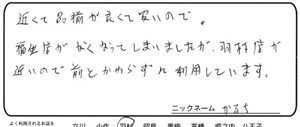 近くて品揃が良くて安いので。
福生店がなくなってしまいましたが、羽村店が
近いので前とかわらずに利用しています。
ニックネーム かるち
よく利用されるお店を 立川 小作 羽村 昭島 青梅 高幡 堀之内 八王子